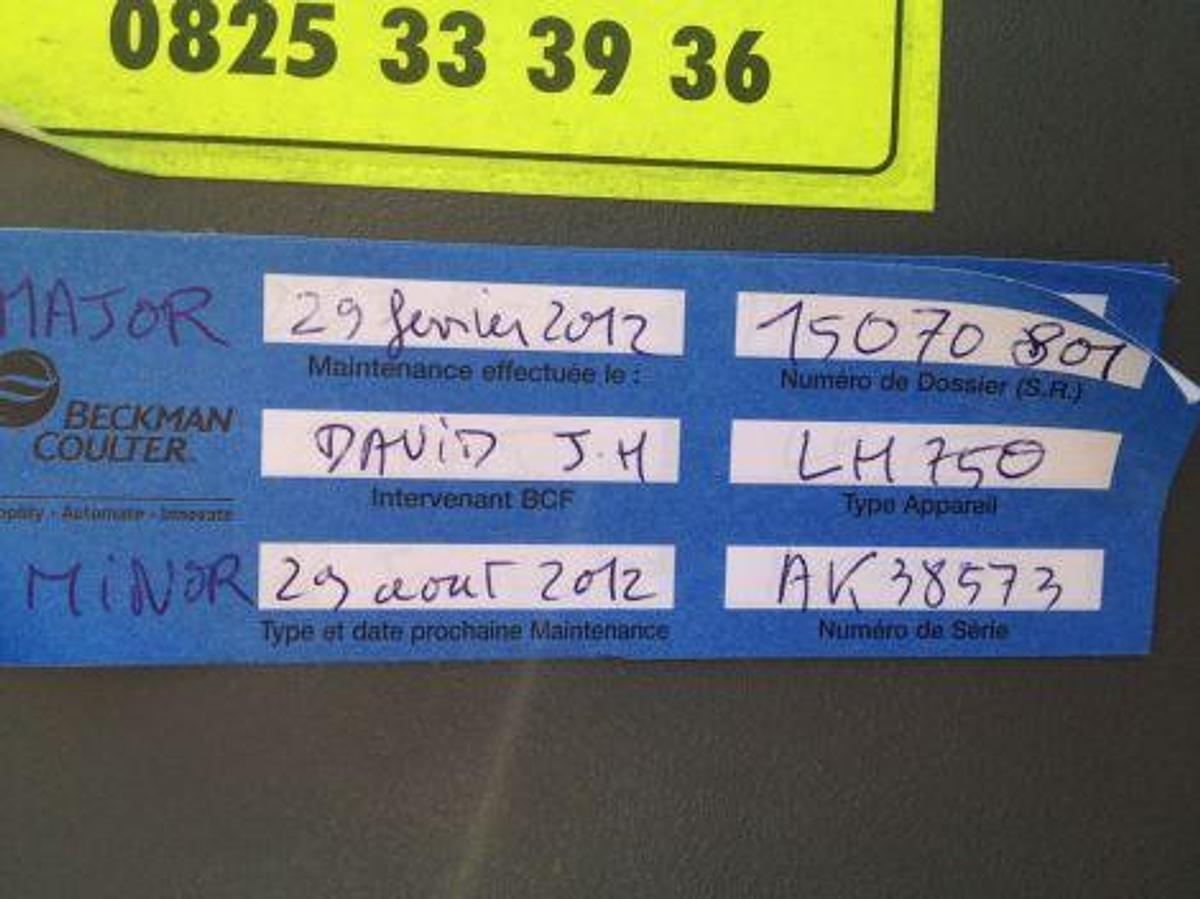 0825 33 39 36
MAJOR
29 fevrier 2012
15070 801
Maintenance effectuée le :
Numéro de Dossier (S.R.)
BECKMAN
COULTER
DAViD J.H
LH 750
Intervenant BCF
Type Appareil
Automate - Innovate
MiNOR
29 aout 2012
AK38573
Type et date prochaine Maintenance
Numéro de Série